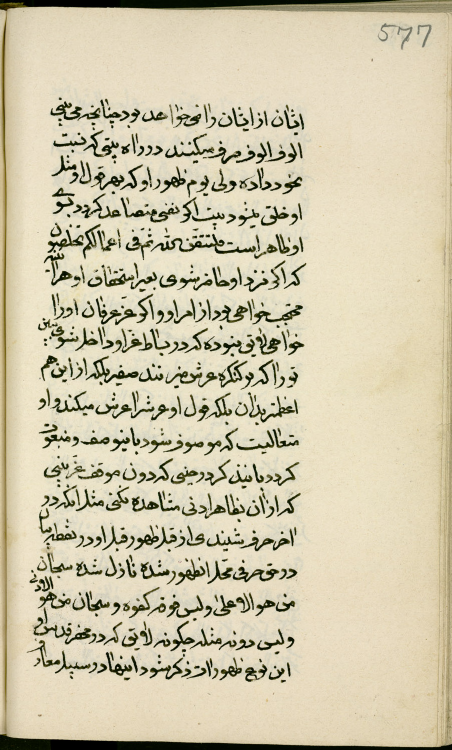 577
ایشان از ایشان راضی خواهد بود چنانچه می بینی
الوف الوف صرف میکنند در راه بیتی که نسبت
بخود داده ولی یوم ظهور او که بهر قول او مثل
او خلق میشود بیت اگر نفسی متصاعد گردد بسوی
او ظاهر است فلتتقن الله ثم فی اعمالکم تخلصون
که اگر نزد او حاضر شوی بغیر استحقاق او هر آینه
محتجب خواهی بود از امر او و اگر عز عرفان او را
خواهی لایق نبوده که در بساط عز او داخل شوی
تو را که بر کنکره عرش میزنند صفیر بلکه از این هم
اعظمتر بدان بلکه قول او عرش را عرش میکند و او
متعالیست که موصوف شود باینوصف و منعوت
گردد باینذکر در حینی که دون موقف عز بینی
که از آن بظاهر ادنی مشاهده نکنی مثل آنکه در
آخر حرف شنیدی از قبل ظهور قبل او در نقطه بیان
در حق حرفی محل انظهور شده نازل شده سبحان
من هو الاعلی ولیس فوقه کفوه و سبحان من هو الادنی
ولیس دونه مثله چگونه لایق که در محضر قدس او
این نوع ظهورات ذکر شود اینها در سبیل معارف